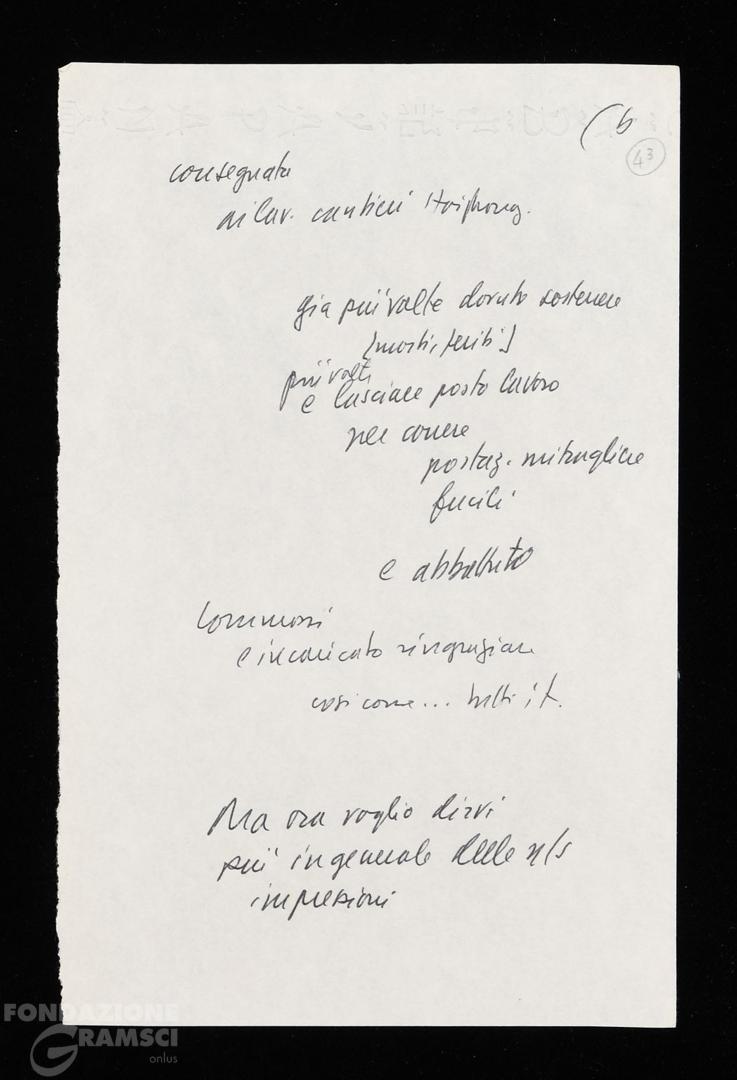 (6
43
consegnata
ai lav. cantieri Haiphong.
già più volte dovuto sostenere
[morti, feriti]
più volte
e lasciare posto lavoro
per correre
postaz. mitragliere
fucili
e abbattuto
Commossi
e incaricato ringraziare
così come... tutti it.
Ma ora voglio dirvi
più in generale delle n/s
impressioni
FONDAZIONE
GRAMSCI
onlus